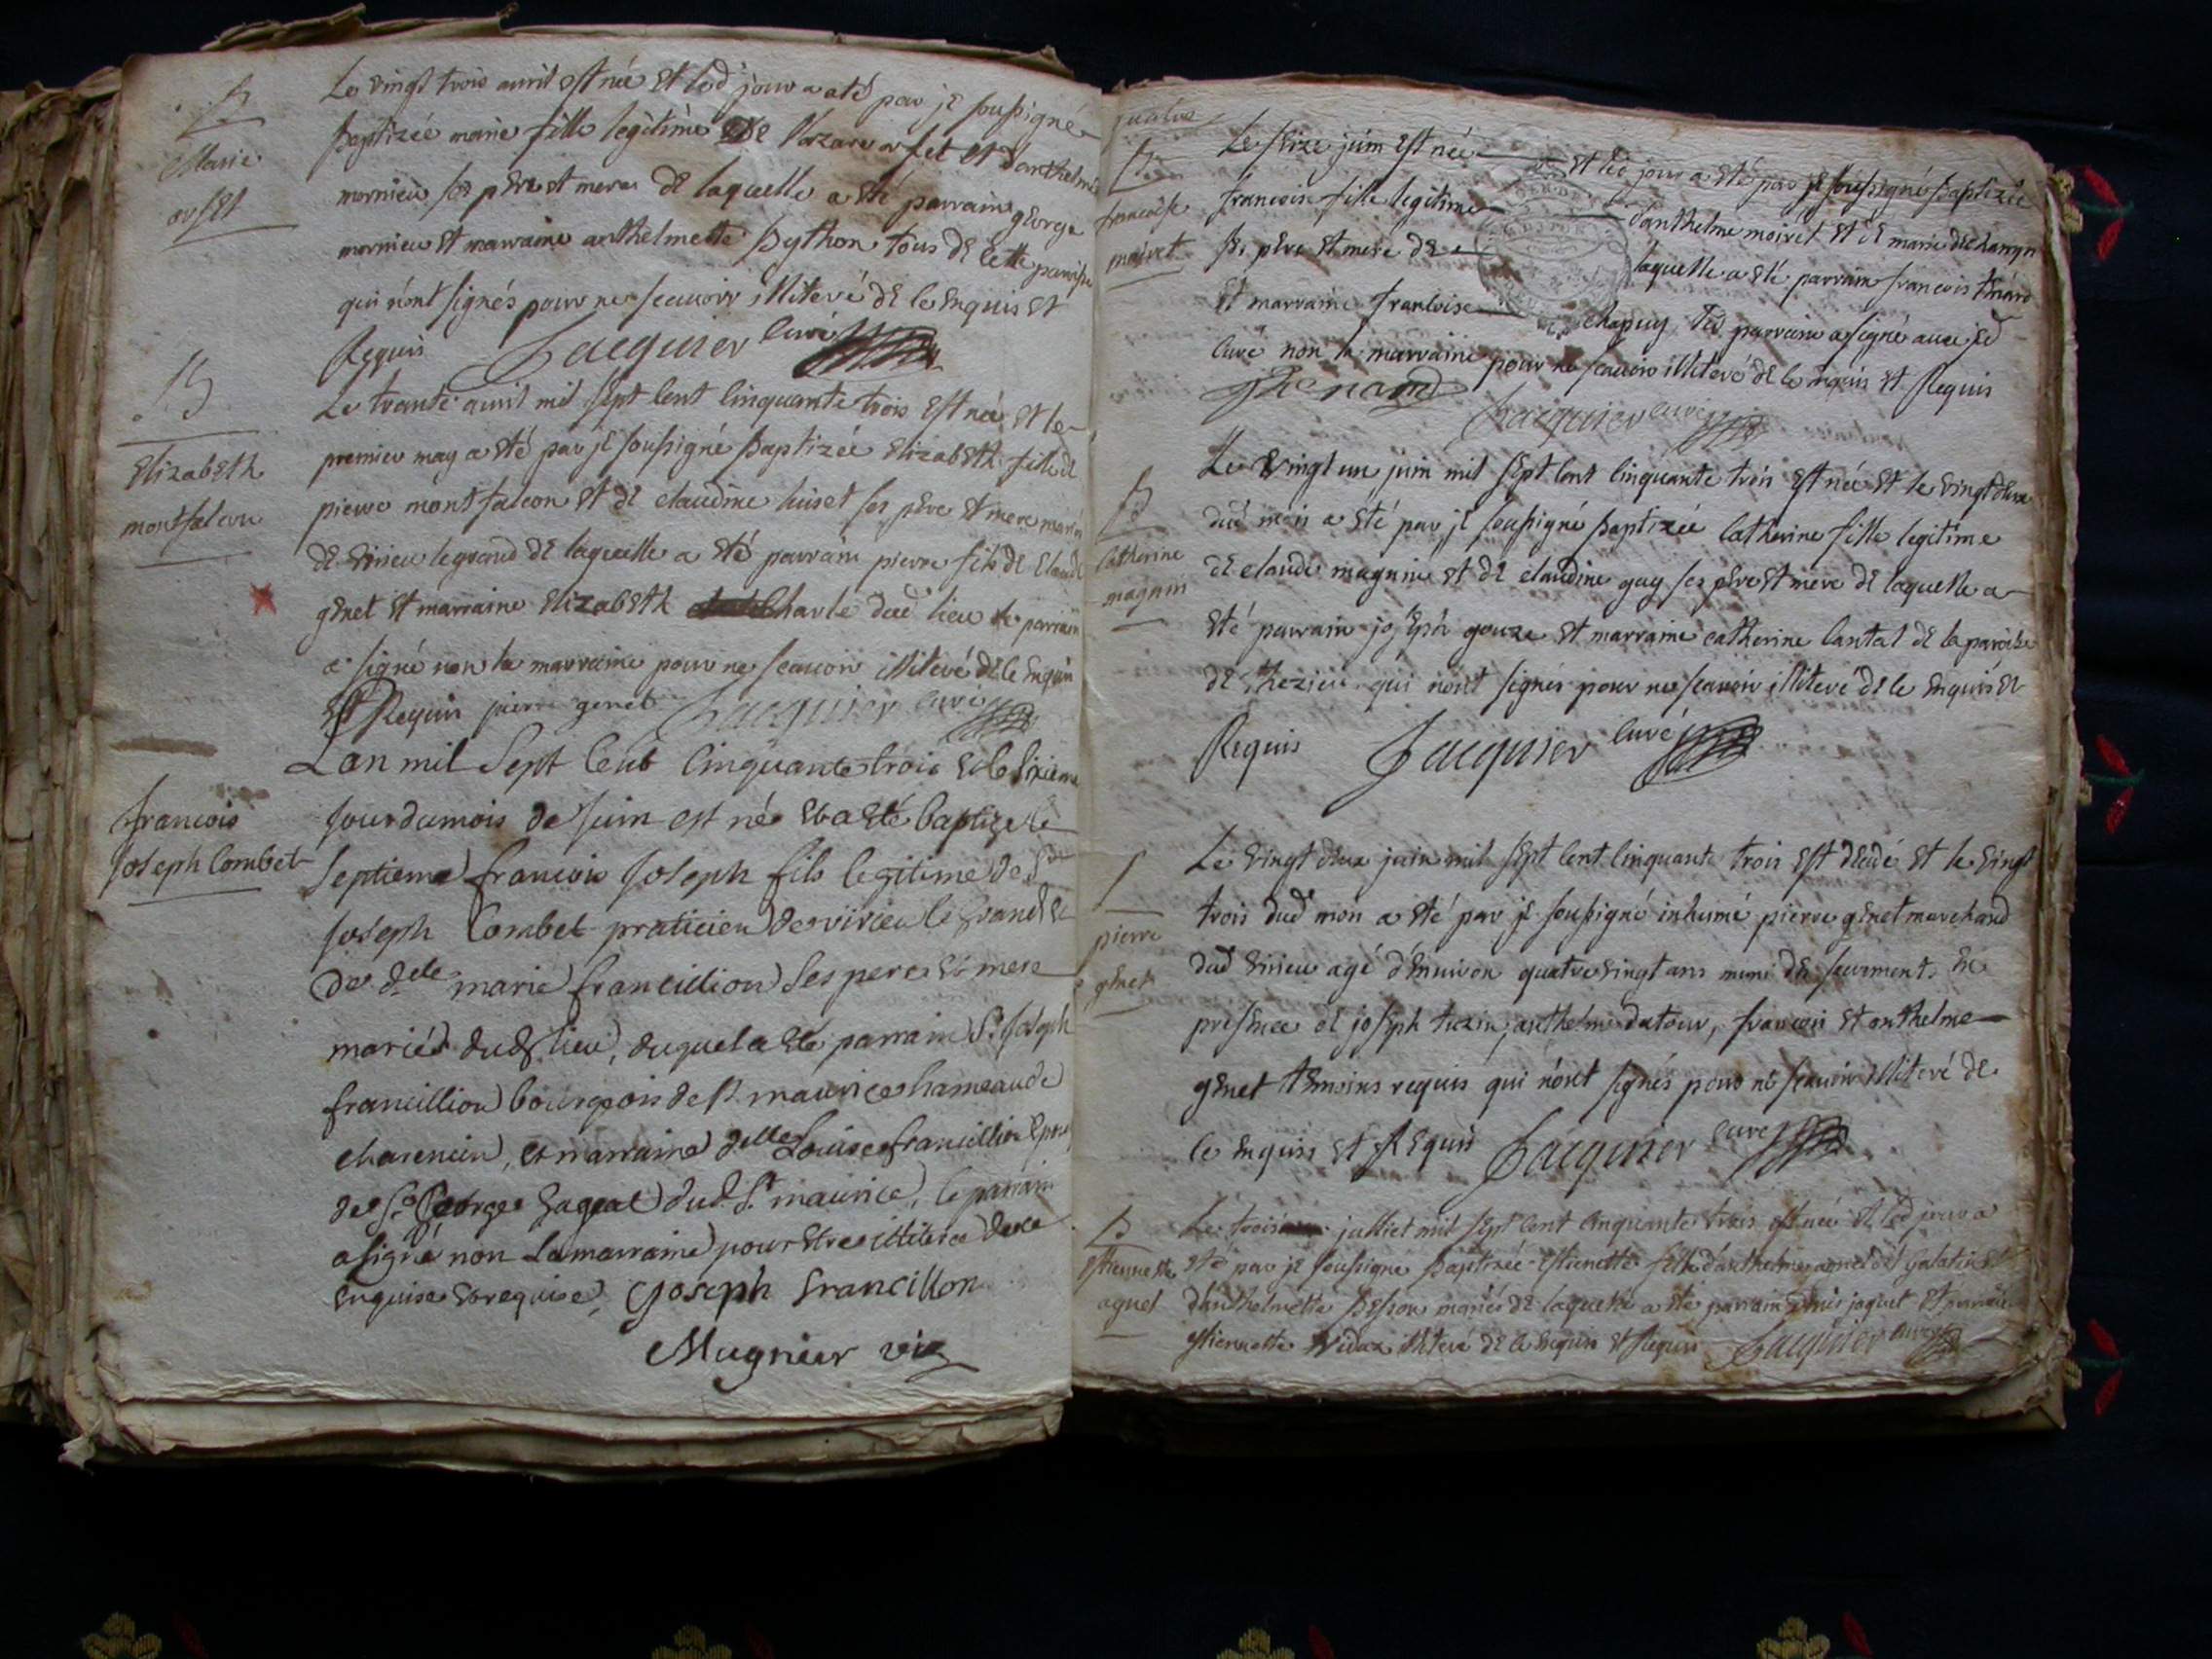 B
Marie
orset
Le vingt trois avril est née et led jour a eté par je soussigné
Baptizée marie fille legitime de Lazare orset et d'anthelme
mornieu ses pere et mere de laquelle a eté parrain george
mornieu et marraine anthelmette Python tous de cette paroisse
qui n'ont signés pour ne scauoir illiteré de ce enquis et
Requis Jacquier curé
B
Elizabeth
montfalcon
Le trante avril mil sept cent cinquante trois est née et le
premier may a eté par je soussigné Baptizée Elizabeth fille de
pierre montfalcon et de claudine huiset ses pere et mere mariés
de virieu le grand de laquelle a eté parrain pierre fils de Claude
genet et marraine Elizabeth Charle dud lieu le parrain
a signé non la marraine pour ne scauoir illiteré de ce enquis
Et Requis pierre genet Jacquier curé
francois
Joseph Combet
Lan mil Sept Cent Cinquante trois et le sixieme
Jour du mois de Juin est né et a eté baptizé le
septieme francois Joseph fils legitime de Sr
Joseph Combet praticien de virieu le grand et
de dlle marie francillion Ses pere et mere
mariés dud lieu, duquel a eté parrain Sr Joseph
francillion bourgeois de St maurice hameau de
charencin, et marraine dlle Louise francillion Epouse
de Sr George gageat dud St maurice, le parrain
a signé non La marraine pour Etre illiterée de ce
enquise et requise, Joseph Francillon
Mugnier vic
B
francoise
moiret
Le seize juin est née et led jour a eté par je soussigné Baptizée
francoise fille legitime d'anthelme moiret et de marie dechanyn
ses pere et mere de laquelle a eté parrain francois thenard
et marraine francoise chapuy led parrain a signé auec je d
curé non la marraine pour ne scauoir illiteré de ce enquis et Requis
Thenard Jacquier curé
B
Catherine
magnin
Le vingt un juin mil sept cent cinquante trois est née et le vingt deux
dud mois a eté par je soussigné Baptizée Catherine fille legitime
de claude magnin et de claudine guy ses pere et mere de laquelle a
eté parrain joseph gouze et marraine catherine Cantal de la paroisse
de thezieu qui n'ont signés pour ne scauoir illiteré de ce enquis et
Requis Jacquier curé
S
pierre
genet
Le vingt deux juin mil sept cent cinquante trois est décédé et le vingt
trois dud mois a eté par je soussigné inhumé pierre genet marchand
dud virieu agé d'enuiron quatre vingt ans muni de sacrements en
presence de joseph tuzin, anthelme dutour, francois et anthelme
genet temoins requis qui n'ont signés pour ne scauoir illiteré de
ce enquis et Requis Jacquier curé
B
Estiennette
aguet
Le trois julliet mil sept cent cinquante trois est née et led jour a
eté par je soussigné Baptizée Estiennette fille d'anthelme aguet dit galatin et
d'anthelmette Besson mariés de laquelle a eté parrain denis jaquet et marraine
Estiennette vidaz illiteré de ce enquis et Requis Jacquier curé